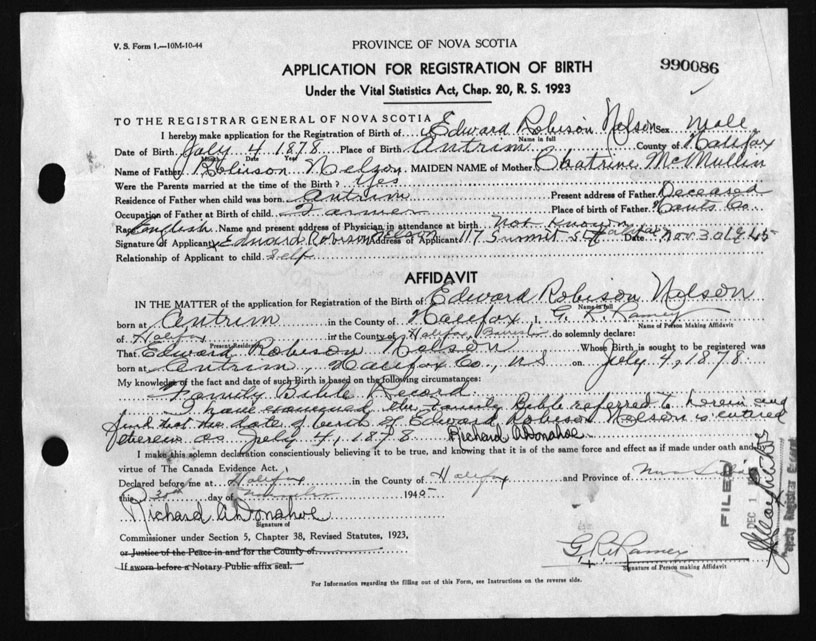 V. S. Form 1.—10M-10-44
PROVINCE OF NOVA SCOTIA
APPLICATION FOR REGISTRATION OF BIRTH
990086
Under the Vital Statistics Act, Chap. 20, R. S. 1923
TO THE REGISTRAR GENERAL OF NOVA SCOTIA
I hereby make application for the Registration of Birth of Edward Robison Nelson Sex Male
Name in full
Date of Birth July 4 1878 Place of Birth Antrim County of Halifax
Month Date Year
Name of Father Robinson Nelson MAIDEN NAME of Mother Chatrine McMullin
Were the Parents married at the time of the Birth? Yes
Residence of Father when child was born Antrim Present address of Father Deceased
Occupation of Father at Birth of child Farmer Place of birth of Father Hants Co
Race English Name and present address of Physician in attendance at birth Not Known
Signature of Applicant Edward Robison Nelson Address of Applicant 117 Summer St Halifax Date Nov 30 1945
Relationship of Applicant to child Self
AFFIDAVIT
IN THE MATTER of the application for Registration of the Birth of Edward Robison Nelson
Name in full
born at Antrim in the County of Halifax I, G. R. Ramey
Name of Person Making Affidavit
of Halifax in the County of Halifax, do solemnly declare:
Present Residence
That Edward Robison Nelson Whose Birth is sought to be registered was
born at Antrim, Halifax Co., NS on July 4, 1878
My knowledge of the fact and date of such Birth is based on the following circumstances:
Family Bible Record
I have examined the Family Bible referred to herein and
find that the date of birth of Edward Robison Nelson is entered
therein as July 4, 1878 Richard A Donahoe
I make this solemn declaration conscientiously believing it to be true, and knowing that it is of the same force and effect as if made under oath and by
virtue of The Canada Evidence Act.
Declared before me at Halifax in the County of Halifax and Province of Nova Scotia
this 30th day of November 1945
Richard A Donahoe
Signature of
Commissioner under Section 5, Chapter 38, Revised Statutes, 1923,
or Justice of the Peace in and for the County of
If sworn before a Notary Public affix seal.
G. R. Ramey
Signature of Person making Affidavit
For Information regarding the filling out of this Form, see Instructions on the reverse side.
FILED
DEC 1
Deputy Registrar General